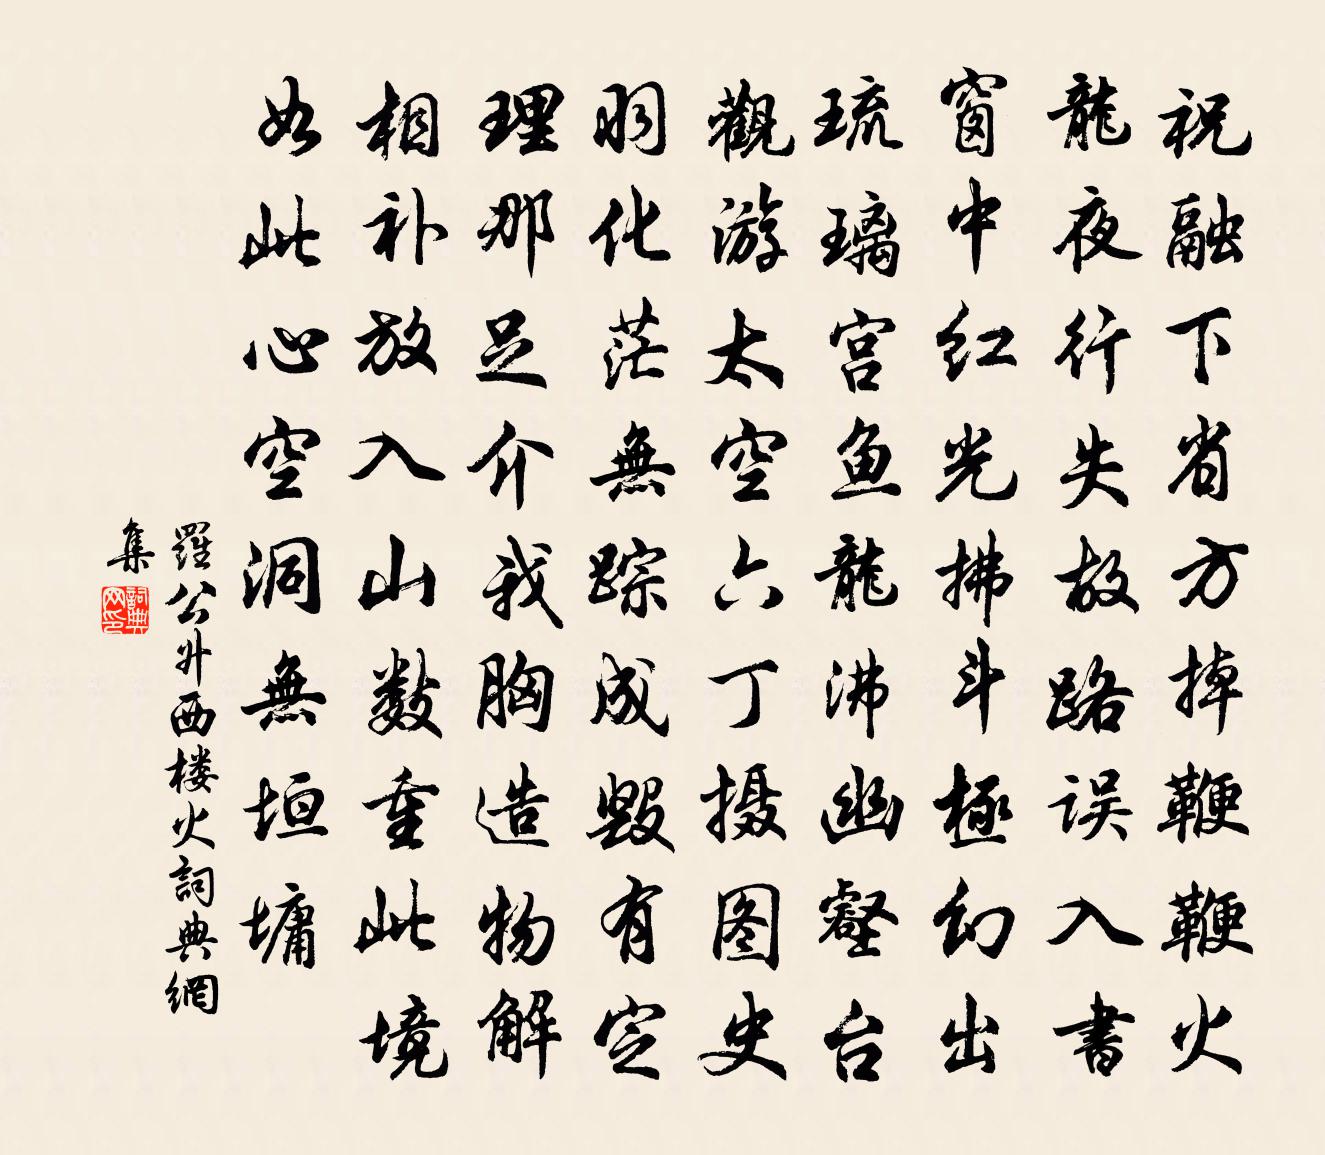 祝融下省方掉鞭鞭火
龍夜行失故路误入書
窗中红光拂斗極幻出
琉璃宫鱼龍沸幽壑台
觀游太空六丁摄图史
羽化茫無踪成毁有定
理那足介我胸造物解
相补放入山数重此境
如此心空洞無垣墉
羅公升西楼火詞典網
集
詞典
网印